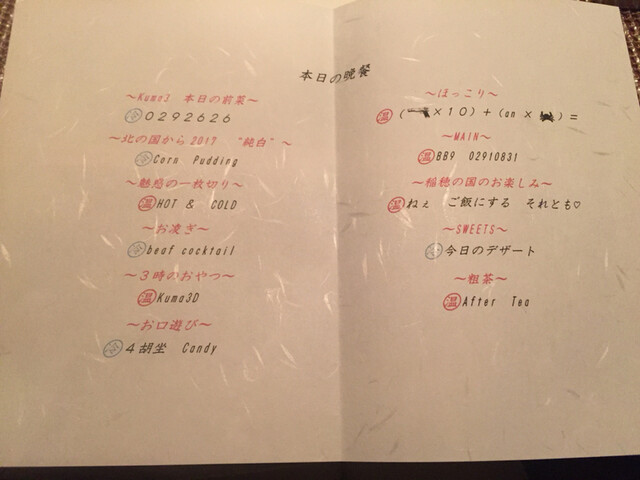 本日の晩餐
～Kuma3 本日の前菜～
冷 0292626
～北の国から2017 “純白”～
冷 Corn Pudding
～魅惑の一枚切り～
温 HOT & COLD
～お凌ぎ～
冷 beaf cocktail
～3時のおやつ～
温 Kuma3D
～お口遊び～
冷 4胡坐 Candy
～ほっこり～
温 ( ×10)+(an× )=
～MAIN～
温 BB9 02910831
～稲穂の国のお楽しみ～
温 ねぇ ご飯にする それとも♡
～SWEETS～
冷 今日のデザート
～粗茶～
温 After Tea